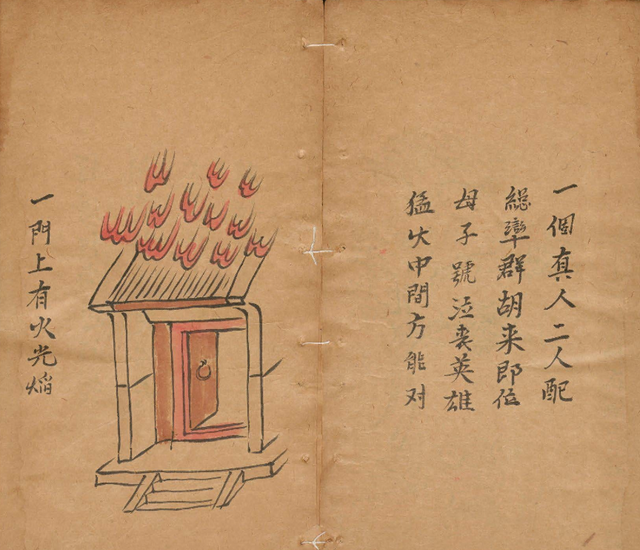 一個真人二人配
總率群胡来即位
母子號泣喪英雄
猛火中間方能对
一門上有火光焰